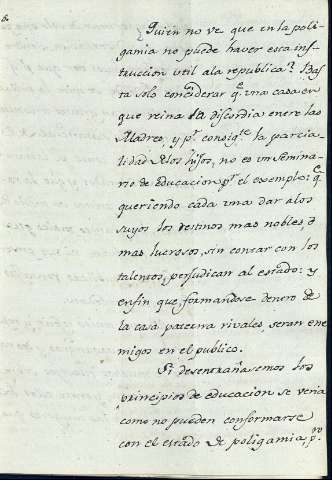 ¿Quien no ve que en la poli-
gamia no puede haver esta ins-
truccion util a la republica? Bas
ta solo considerar q.e una casa en
que reina la discordia entre las
Madres, y p.r consig.te la parcia-
lidad de los hijos, no es un semina-
rio de educacion p.r el exemplo: q.e
queriendo cada una dar a los
suyos los destinos mas nobles, ó
mas lucrosos, sin contar con los
talentos, perjudican al estado: y
enfin que, formandose dentro de
la casa paterna rivales, seran ene
migos en el publico.
Si desentrañasemos los
principios de educacion se veria
como no pueden conformarse
con el estado de poligamia, p.r